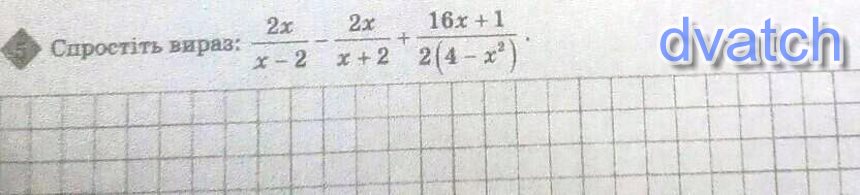 5 Спростіть вираз: 2x/(x − 2) − 2x/(x + 2) + (16x + 1)/(2(4 − x²)).
dvatch